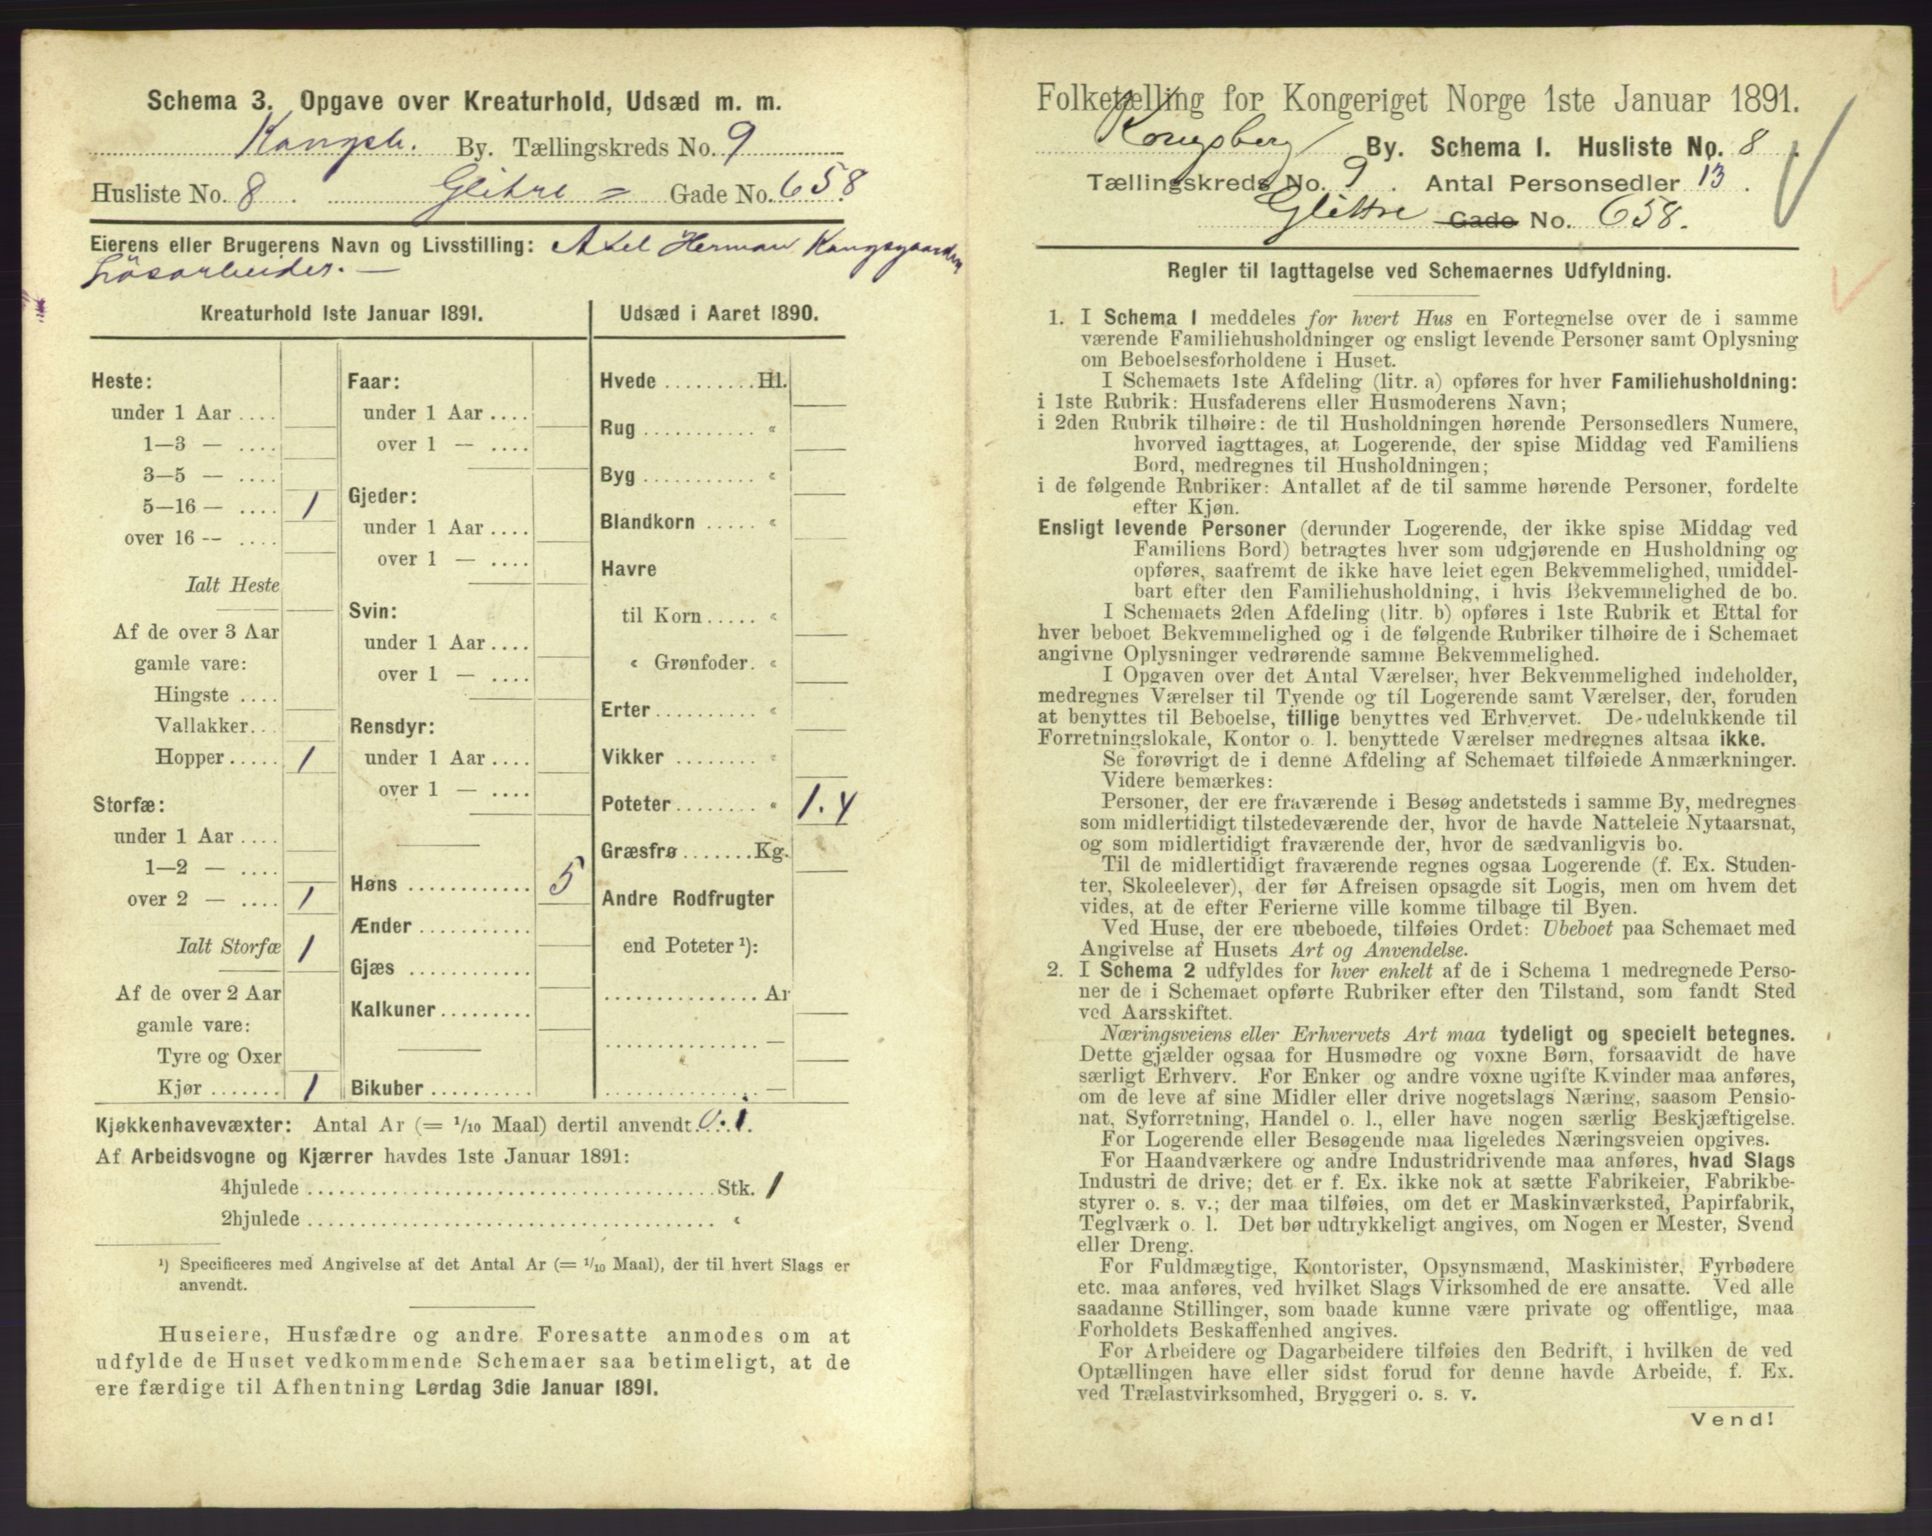 Schema 3. Opgave over Kreaturhold, Udsæd m. m.
Kongsb. By. Tællingskreds No. 9
Husliste No. 8. Glitre = Gade No. 658.
Eierens eller Brugerens Navn og Livsstilling: Axel Herman Kongsgaarden
Løsarbeider. —
Kreaturhold 1ste Januar 1891.
Heste:
under 1 Aar ....
1—3 — ....
3—5 — ....
5—16 — .... 1
over 16 — ....
Ialt Heste
Af de over 3 Aar
gamle vare:
Hingste ....
Vallakker...
Hopper ..... 1
Storfæ:
under 1 Aar ....
1—2 — ....
over 2 — .... 1
Ialt Storfæ 1
Af de over 2 Aar
gamle vare:
Tyre og Oxer
Kjør ....... 1
Faar:
under 1 Aar ....
over 1 — ....
Gjeder:
under 1 Aar ....
over 1 — ....
Svin:
under 1 Aar ....
over 1 — ....
Rensdyr:
under 1 Aar ....
over 1 — ....
Høns ............ 5
Ænder ...........
Gjæs ............
Kalkuner .........
Bikuber ..........
Udsæd i Aaret 1890.
Hvede ......... Hl.
Rug ........... «
Byg ........... «
Blandkorn ..... «
Havre
til Korn ..... «
« Grønfoder. «
Erter .......... «
Vikker ........ «
Poteter ........ « 1.4
Græsfrø ....... Kg.
Andre Rodfrugter
end Poteter ¹):
............... Ar
............... —
............... —
Kjøkkenhavevæxter: Antal Ar (= 1/10 Maal) dertil anvendt 0.1.
Af Arbeidsvogne og Kjærrer havdes 1ste Januar 1891:
4hjulede ........ Stk. 1
2hjulede ........ «
¹) Specificeres med Angivelse af det Antal Ar (= 1/10 Maal), der til hvert Slags er
anvendt.
Huseiere, Husfædre og andre Foresatte anmodes om at
udfylde de Huset vedkommende Schemaer saa betimeligt, at de
ere færdige til Afhentning Lørdag 3die Januar 1891.
Folketælling for Kongeriget Norge 1ste Januar 1891.
Kongsberg By. Schema I. Husliste No. 8.
Tællingskreds No. 9. Antal Personsedler 13.
Glittre Gade No. 658.
Regler til Iagttagelse ved Schemaernes Udfyldning.
1. I Schema I meddeles for hvert Hus en Fortegnelse over de i samme
værende Familiehusholdninger og ensligt levende Personer samt Oplysning
om Beboelsesforholdene i Huset.
I Schemaets 1ste Afdeling (litr. a) opføres for hver Familiehusholdning:
i 1ste Rubrik: Husfaderens eller Husmoderens Navn;
i 2den Rubrik tilhøire: de til Husholdningen hørende Personsedlers Numere,
hvorved iagttages, at Logerende, der spise Middag ved Familiens
Bord, medregnes til Husholdningen;
i de følgende Rubriker: Antallet af de til samme hørende Personer, fordelte
efter Kjøn.
Ensligt levende Personer (derunder Logerende, der ikke spise Middag ved
Familiens Bord) betragtes hver som udgjørende en Husholdning og
opføres, saafremt de ikke have leiet egen Bekvemmelighed, umiddel-
bart efter den Familiehusholdning, i hvis Bekvemmelighed de bo.
I Schemaets 2den Afdeling (litr. b) opføres i 1ste Rubrik et Ettal for
hver beboet Bekvemmelighed og i de følgende Rubriker tilhøire de i Schemaet
angivne Oplysninger vedrørende samme Bekvemmelighed.
I Opgaven over det Antal Værelser, hver Bekvemmelighed indeholder,
medregnes Værelser til Tyende og til Logerende samt Værelser, der, foruden
at benyttes til Beboelse, tillige benyttes ved Erhvervet. De udelukkende til
Forretningslokale, Kontor o. l. benyttede Værelser medregnes altsaa ikke.
Se forøvrigt de i denne Afdeling af Schemaet tilføiede Anmærkninger.
Videre bemærkes:
Personer, der ere fraværende i Besøg andetsteds i samme By, medregnes
som midlertidigt tilstedeværende der, hvor de havde Natteleie Nytaarsnat,
og som midlertidigt fraværende der, hvor de sædvanligvis bo.
Til de midlertidigt fraværende regnes ogsaa Logerende (f. Ex. Studen-
ter, Skoleelever), der før Afreisen opsagde sit Logis, men om hvem det
vides, at de efter Ferierne ville komme tilbage til Byen.
Ved Huse, der ere ubeboede, tilføies Ordet: Ubeboet paa Schemaet med
Angivelse af Husets Art og Anvendelse.
2. I Schema 2 udfyldes for hver enkelt af de i Schema 1 medregnede Perso-
ner de i Schemaet opførte Rubriker efter den Tilstand, som fandt Sted
ved Aarsskiftet.
Næringsveiens eller Erhvervets Art maa tydeligt og specielt betegnes.
Dette gjælder ogsaa for Husmødre og voxne Børn, forsaavidt de have
særligt Erhverv. For Enker og andre voxne ugifte Kvinder maa anføres,
om de leve af sine Midler eller drive nogetslags Næring, saasom Pensio-
nat, Syforretning, Handel o. l., eller have nogen særlig Beskjæftigelse.
For Logerende eller Besøgende maa ligeledes Næringsveien opgives.
For Haandværkere og andre Industridrivende maa anføres, hvad Slags
Industri de drive; det er f. Ex. ikke nok at sætte Fabrikeier, Fabrikbe-
styrer o. s. v.; der maa tilføies, om det er Maskinværksted, Papirfabrik,
Teglværk o. l. Det bør udtrykkeligt angives, om Nogen er Mester, Svend
eller Dreng.
For Fuldmægtige, Kontorister, Opsynsmænd, Maskinister, Fyrbødere
etc. maa anføres, ved hvilket Slags Virksomhed de ere ansatte. Ved alle
saadanne Stillinger, som baade kunne være private og offentlige, maa
Forholdets Beskaffenhed angives.
For Arbeidere og Dagarbeidere tilføies den Bedrift, i hvilken de ved
Optællingen have eller sidst forud for denne havde Arbeide, f. Ex.
ved Trælastvirksomhed, Bryggeri o. s. v.
Vend!